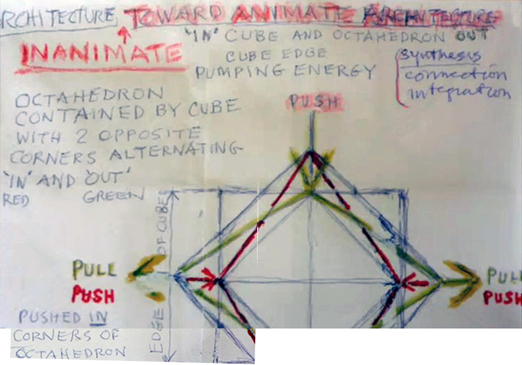 RCHITECTURE TOWARD ANIMATE ARCHITECTURE
INANIMATE
"IN" CUBE AND OCTAHEDRON OUT
CUBE EDGE
PUMPING ENERGY
(synthesis
connection
integration
OCTAHEDRON
CONTAINED BY CUBE
WITH 2 OPPOSITE
CORNERS ALTERNATING
"IN" AND OUT"
RED GREEN
PUSH
EDGE OF CUBE
PULL
PUSH
PULL
PUSH
PUSHED IN
CORNERS OF
OCTAHEDRON